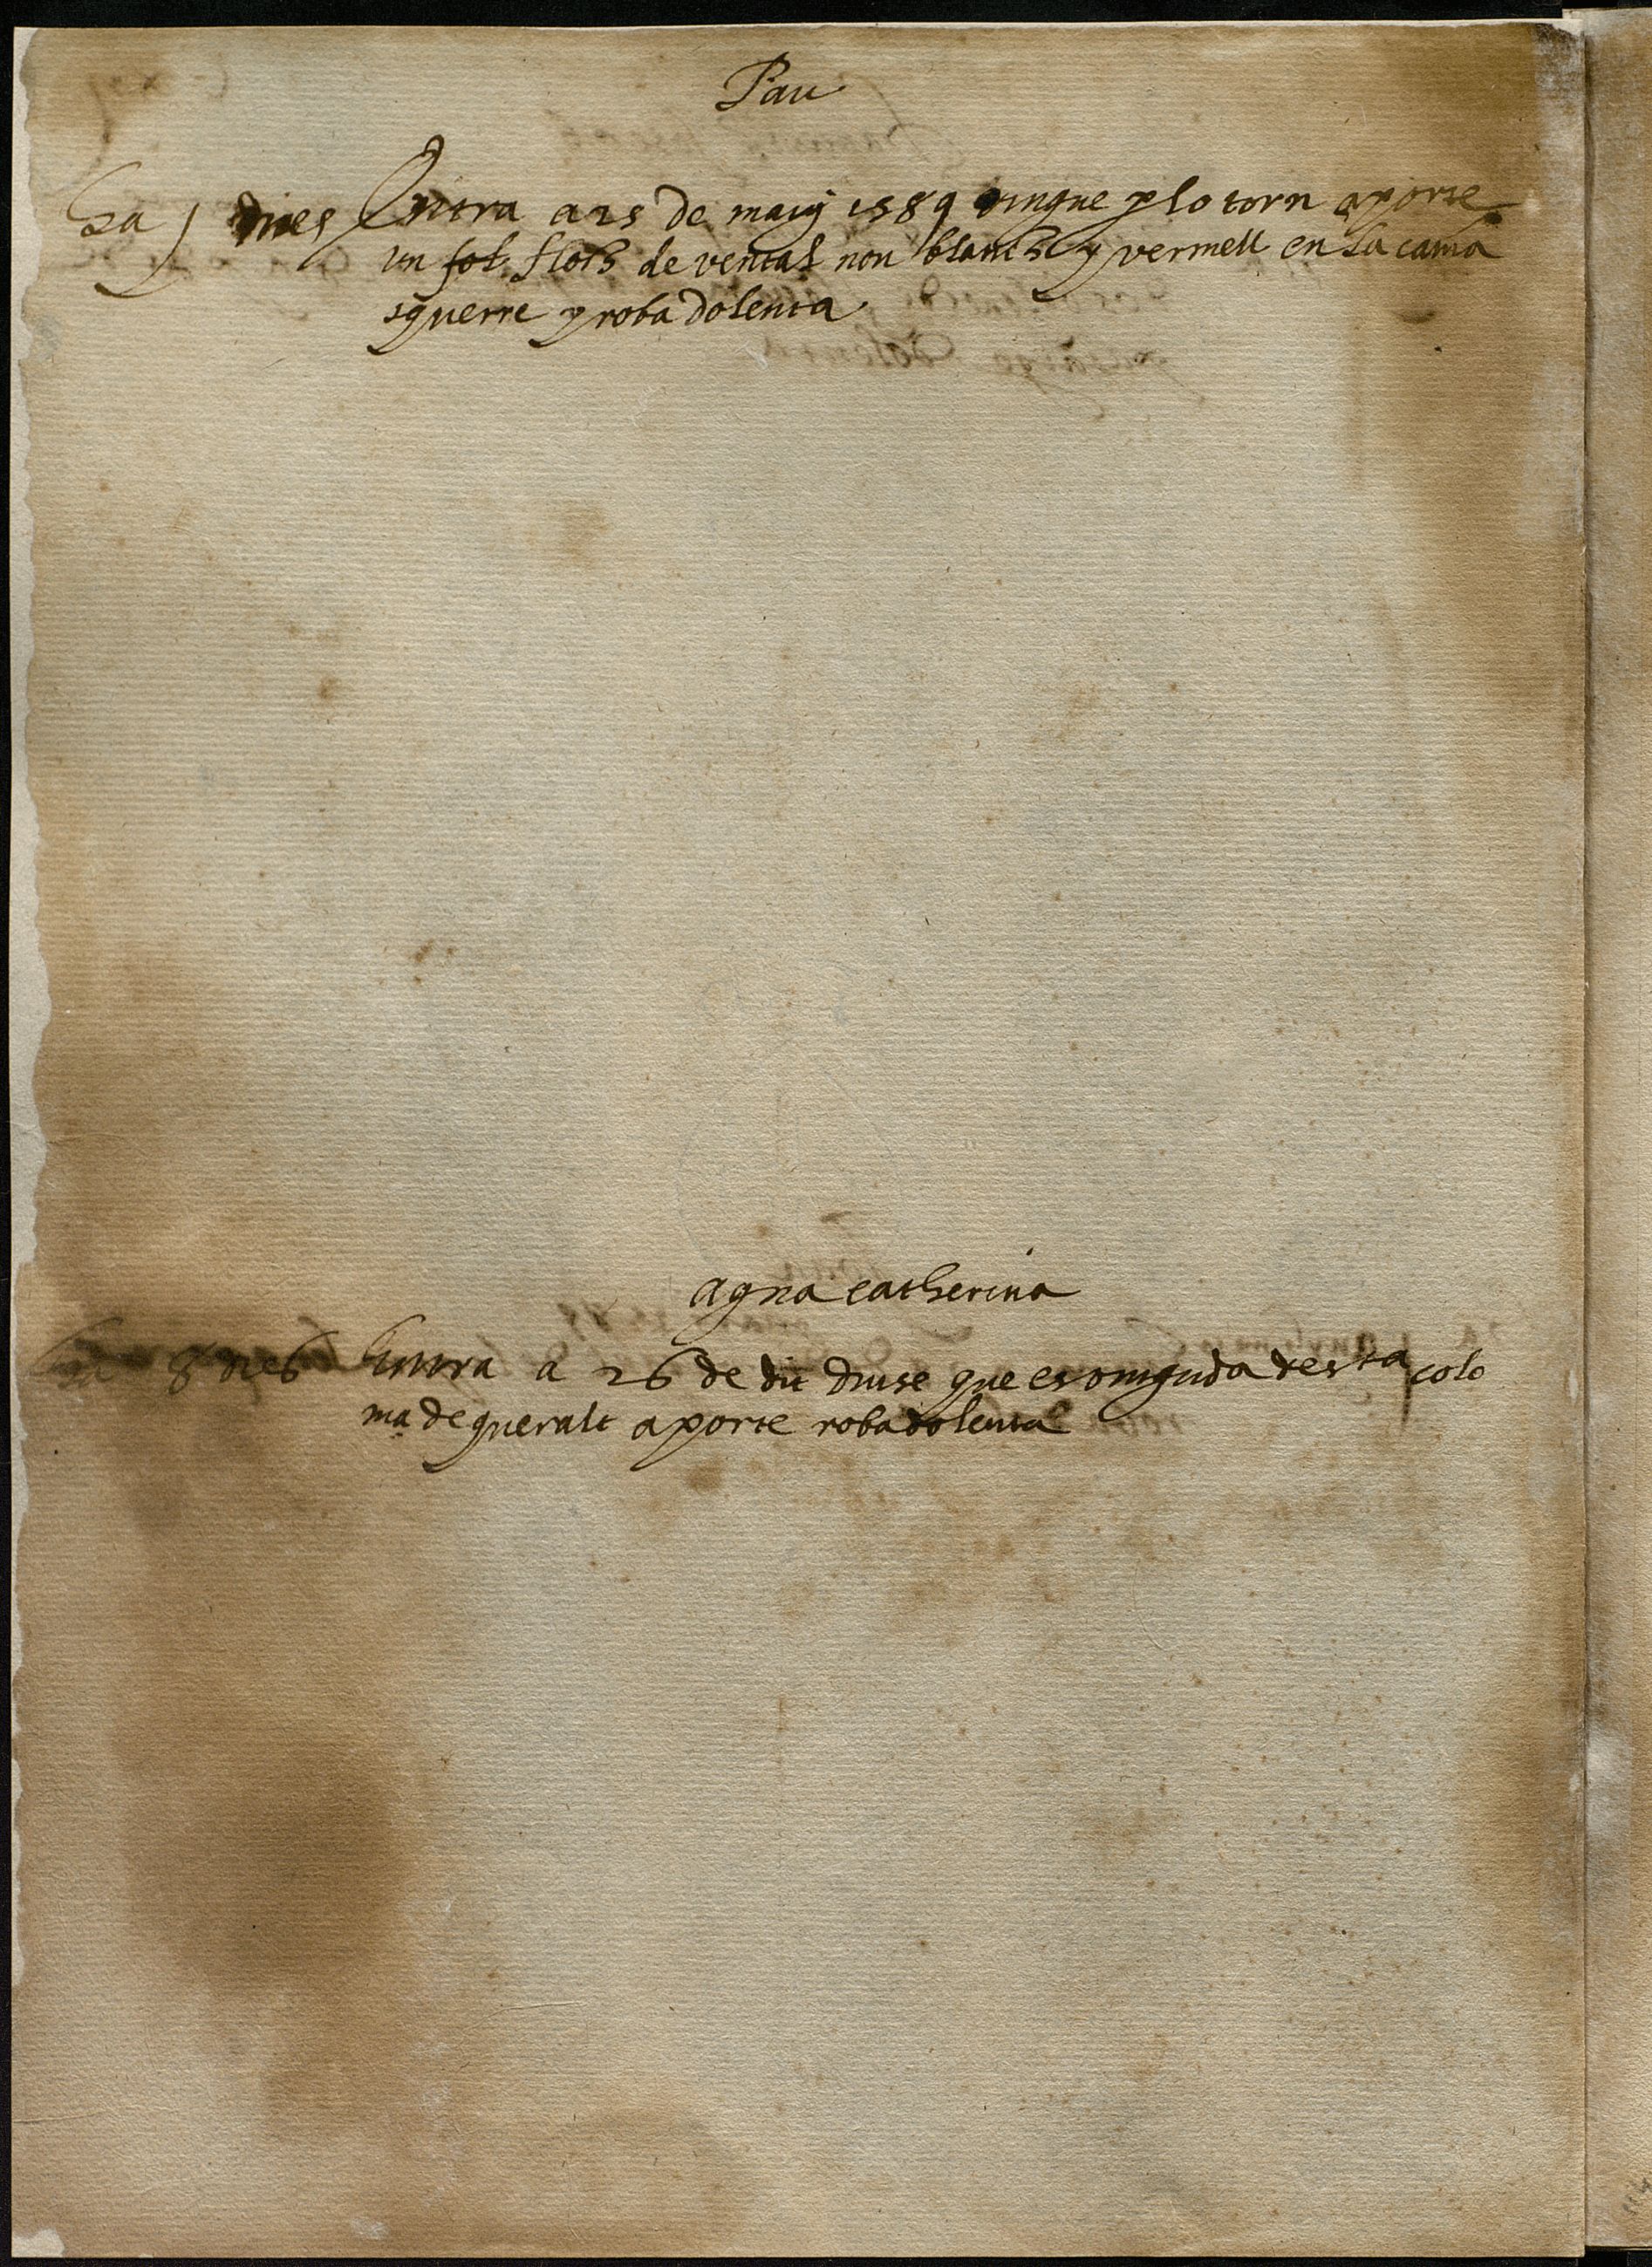 Pau
ha j dies Entra a 25 de maig 1589 vingue p lo torn aporte
un fot floch de vental nou blanch y vermell en la cama
squerre y roba dolenta
agna catherina
ha 8 dies Entra a 26 de dit diuse que es vinguda de sta colo
ma de queralt aporte roba dolenta